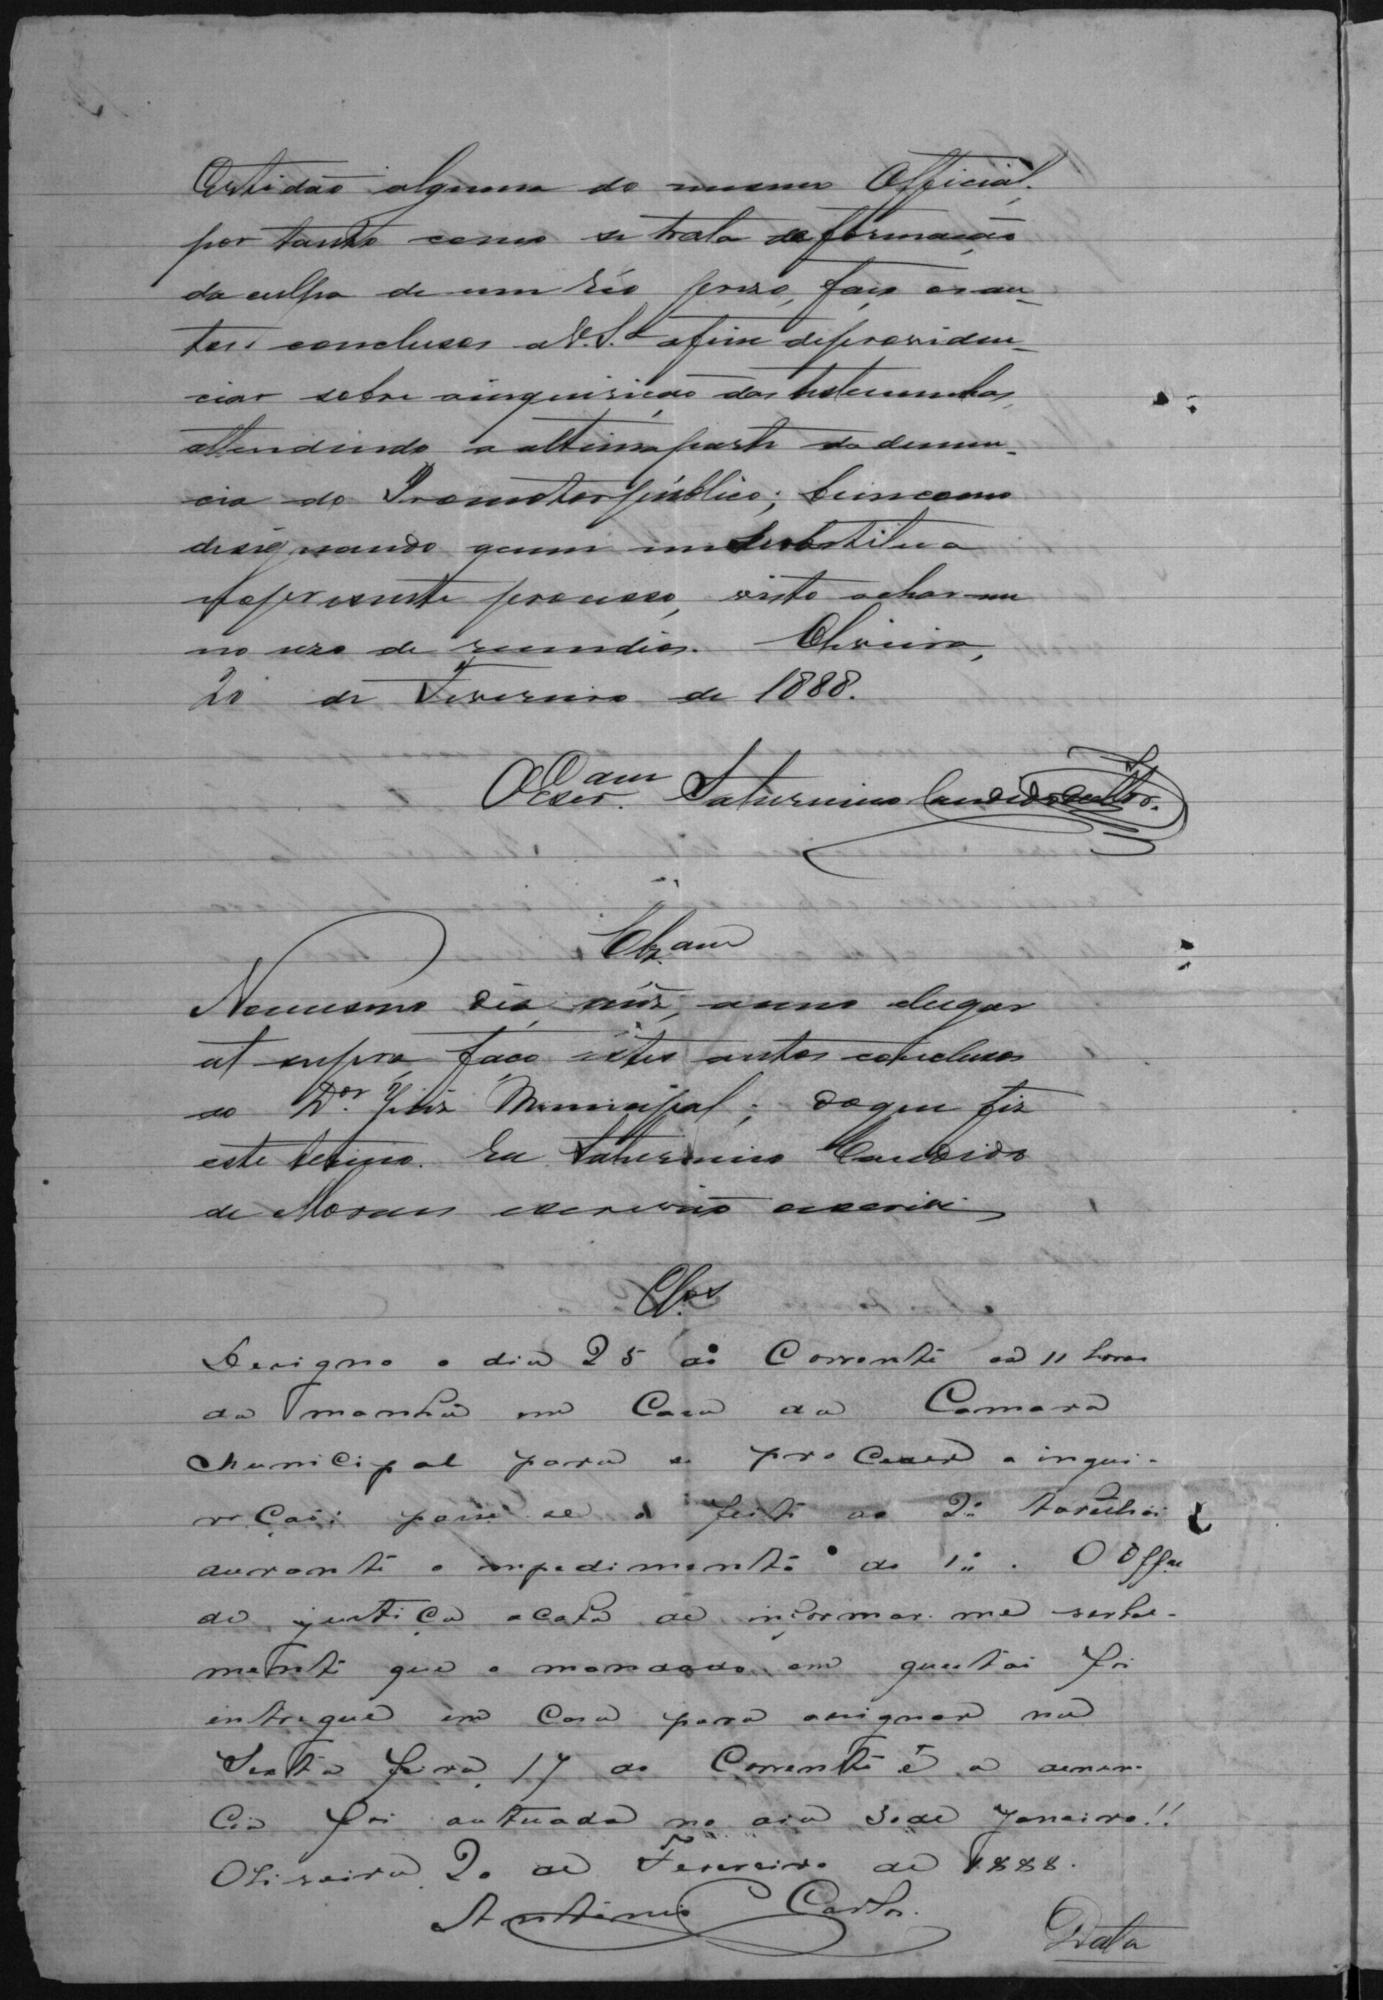 Certidão alguma do mesmo Official,
por tanto como se trata da formação
da culpa de um réo prezo, faço os au-
tos conclusos a V. S.ª afim de providen-
ciar sobre a inquirição das testemunhas,
attendendo a ultima parte da denun-
cia do Promotor publico; bem como
designando quem me substitua
no presente processo, visto achar-me
no uso de remedios. Oliveira,
20 de Fevereiro de 1888.
O Escr.am Saturnino Candido
Clz.am
No mesmo dia, mez, anno e lugar
ut supra, faço estes autos conclusos
ao D.or Juiz Municipal; do que fiz
este termo. Eu Saturnino Candido
de Moraes escrivão escrevi
Cl.os
Designo o dia 25 do Corrente as 11 horas
da manhã em Casa da Camara
Municipal para se proceder a inqui-
rição; passe-se o feito ao 2º tabelião
durante o impedimento do 1º. O Offal
de justiça acaba de informar-me verbal-
mente que o mandado em questão foi
entregue em Casa para assignar na
Sexta feira 17 do Corrente é a denun-
cia foi autuada no dia 30 de Janeiro!!
Oliveira 20 de Fevereiro de 1888.
Antonio Carlos.
Data